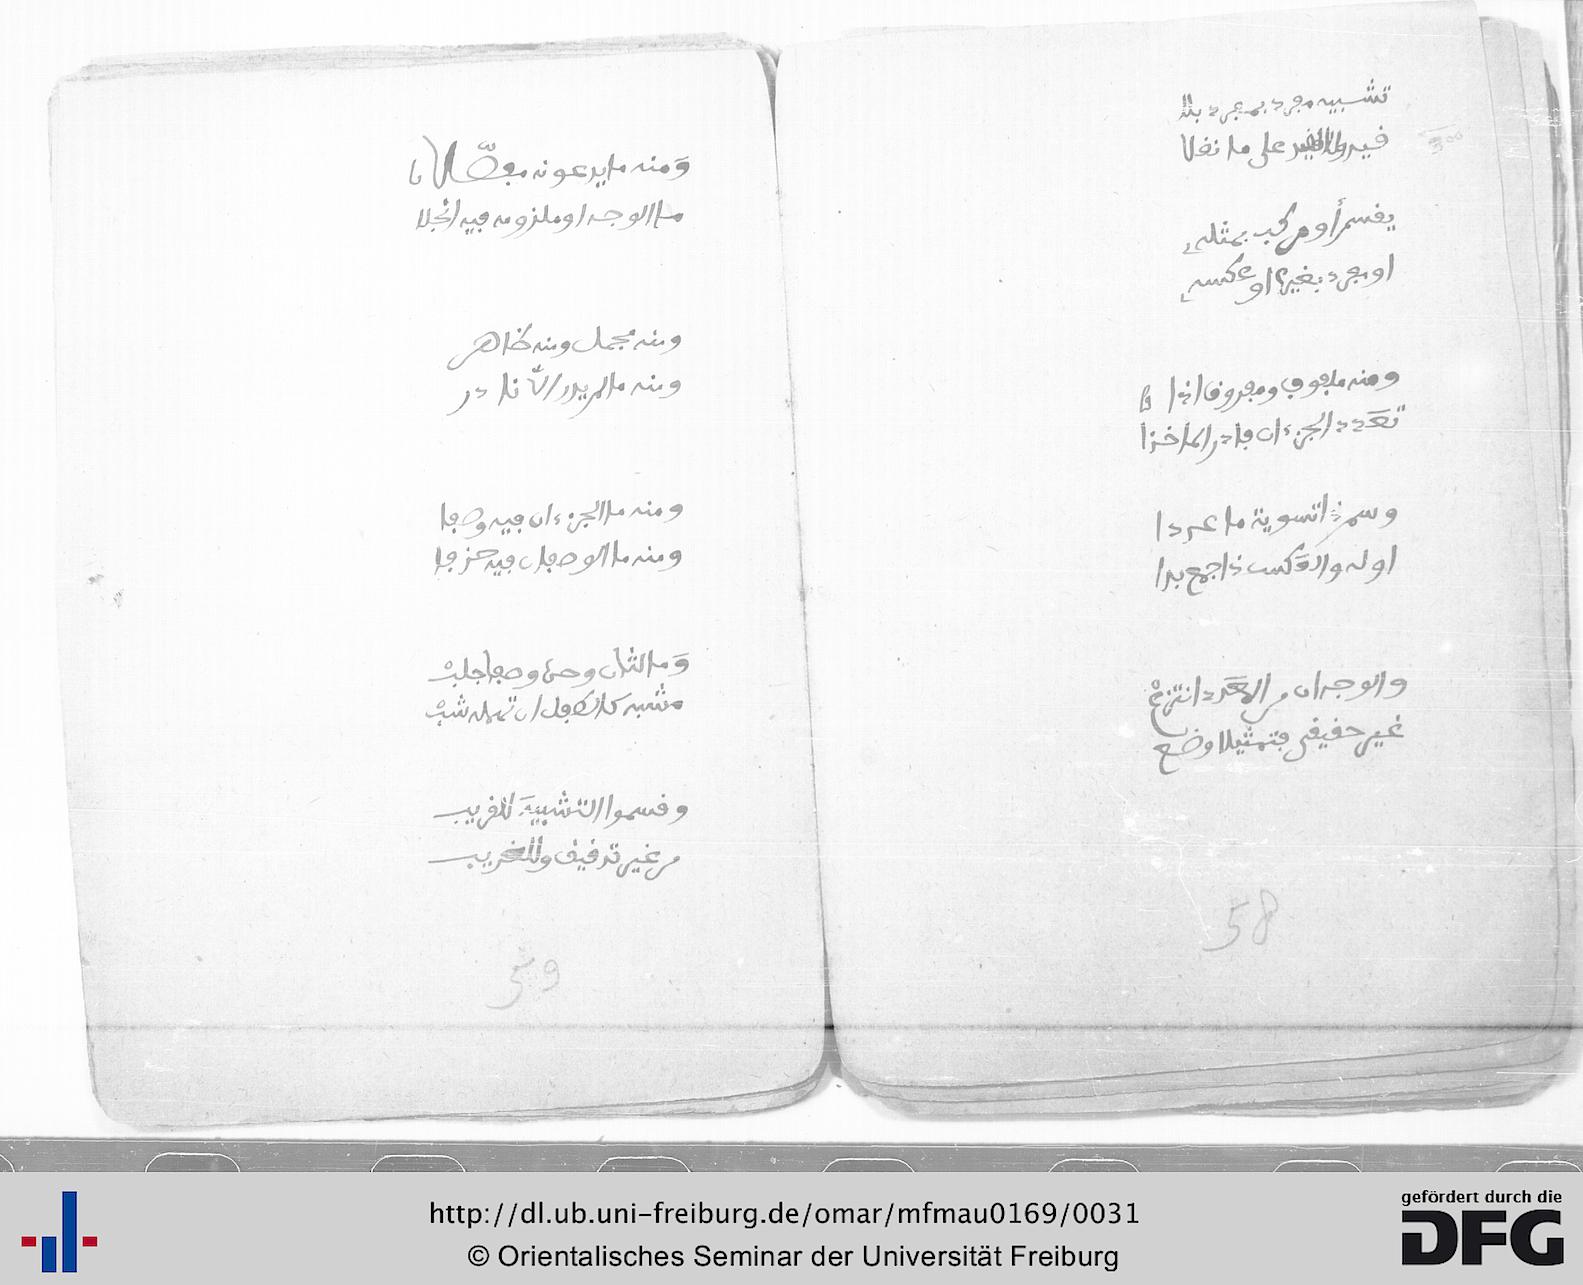 تشبيه مفرد بمفرد بلا
قيد على ما نقلا
يقسم أو مركب بمثله
او مفرد بغير او عكسه
ومنه ملفوف ومفروق اذا
تعدد الجزءان فادر الماخذا
وسم ذا تسوية ما عددا
اوله والعكس ذا جمع بدا
والوجه ان من العدد انتزع
غير حقيقي فتمثيلا وضع
58
ومنه ما يدعونه مفصلا
ما الوجه او ملزومه فيه انجلا
ومنه مجمل ومنه ظاهر
ومنه ما لم يدر الا نادر
ومنه ما الجزءان فيه وصفا
ومنه ما الوصفان فيه حذفا
وما الثان وصفا جلب
مشبه
وقسموا التشبيه للقريب
من غير تدقيق وللغريب
59
http://dl.ub.uni-freiburg.de/omar/mfmau0169/0031
© Orientalisches Seminar der Universität Freiburg
gefördert durch die
DFG